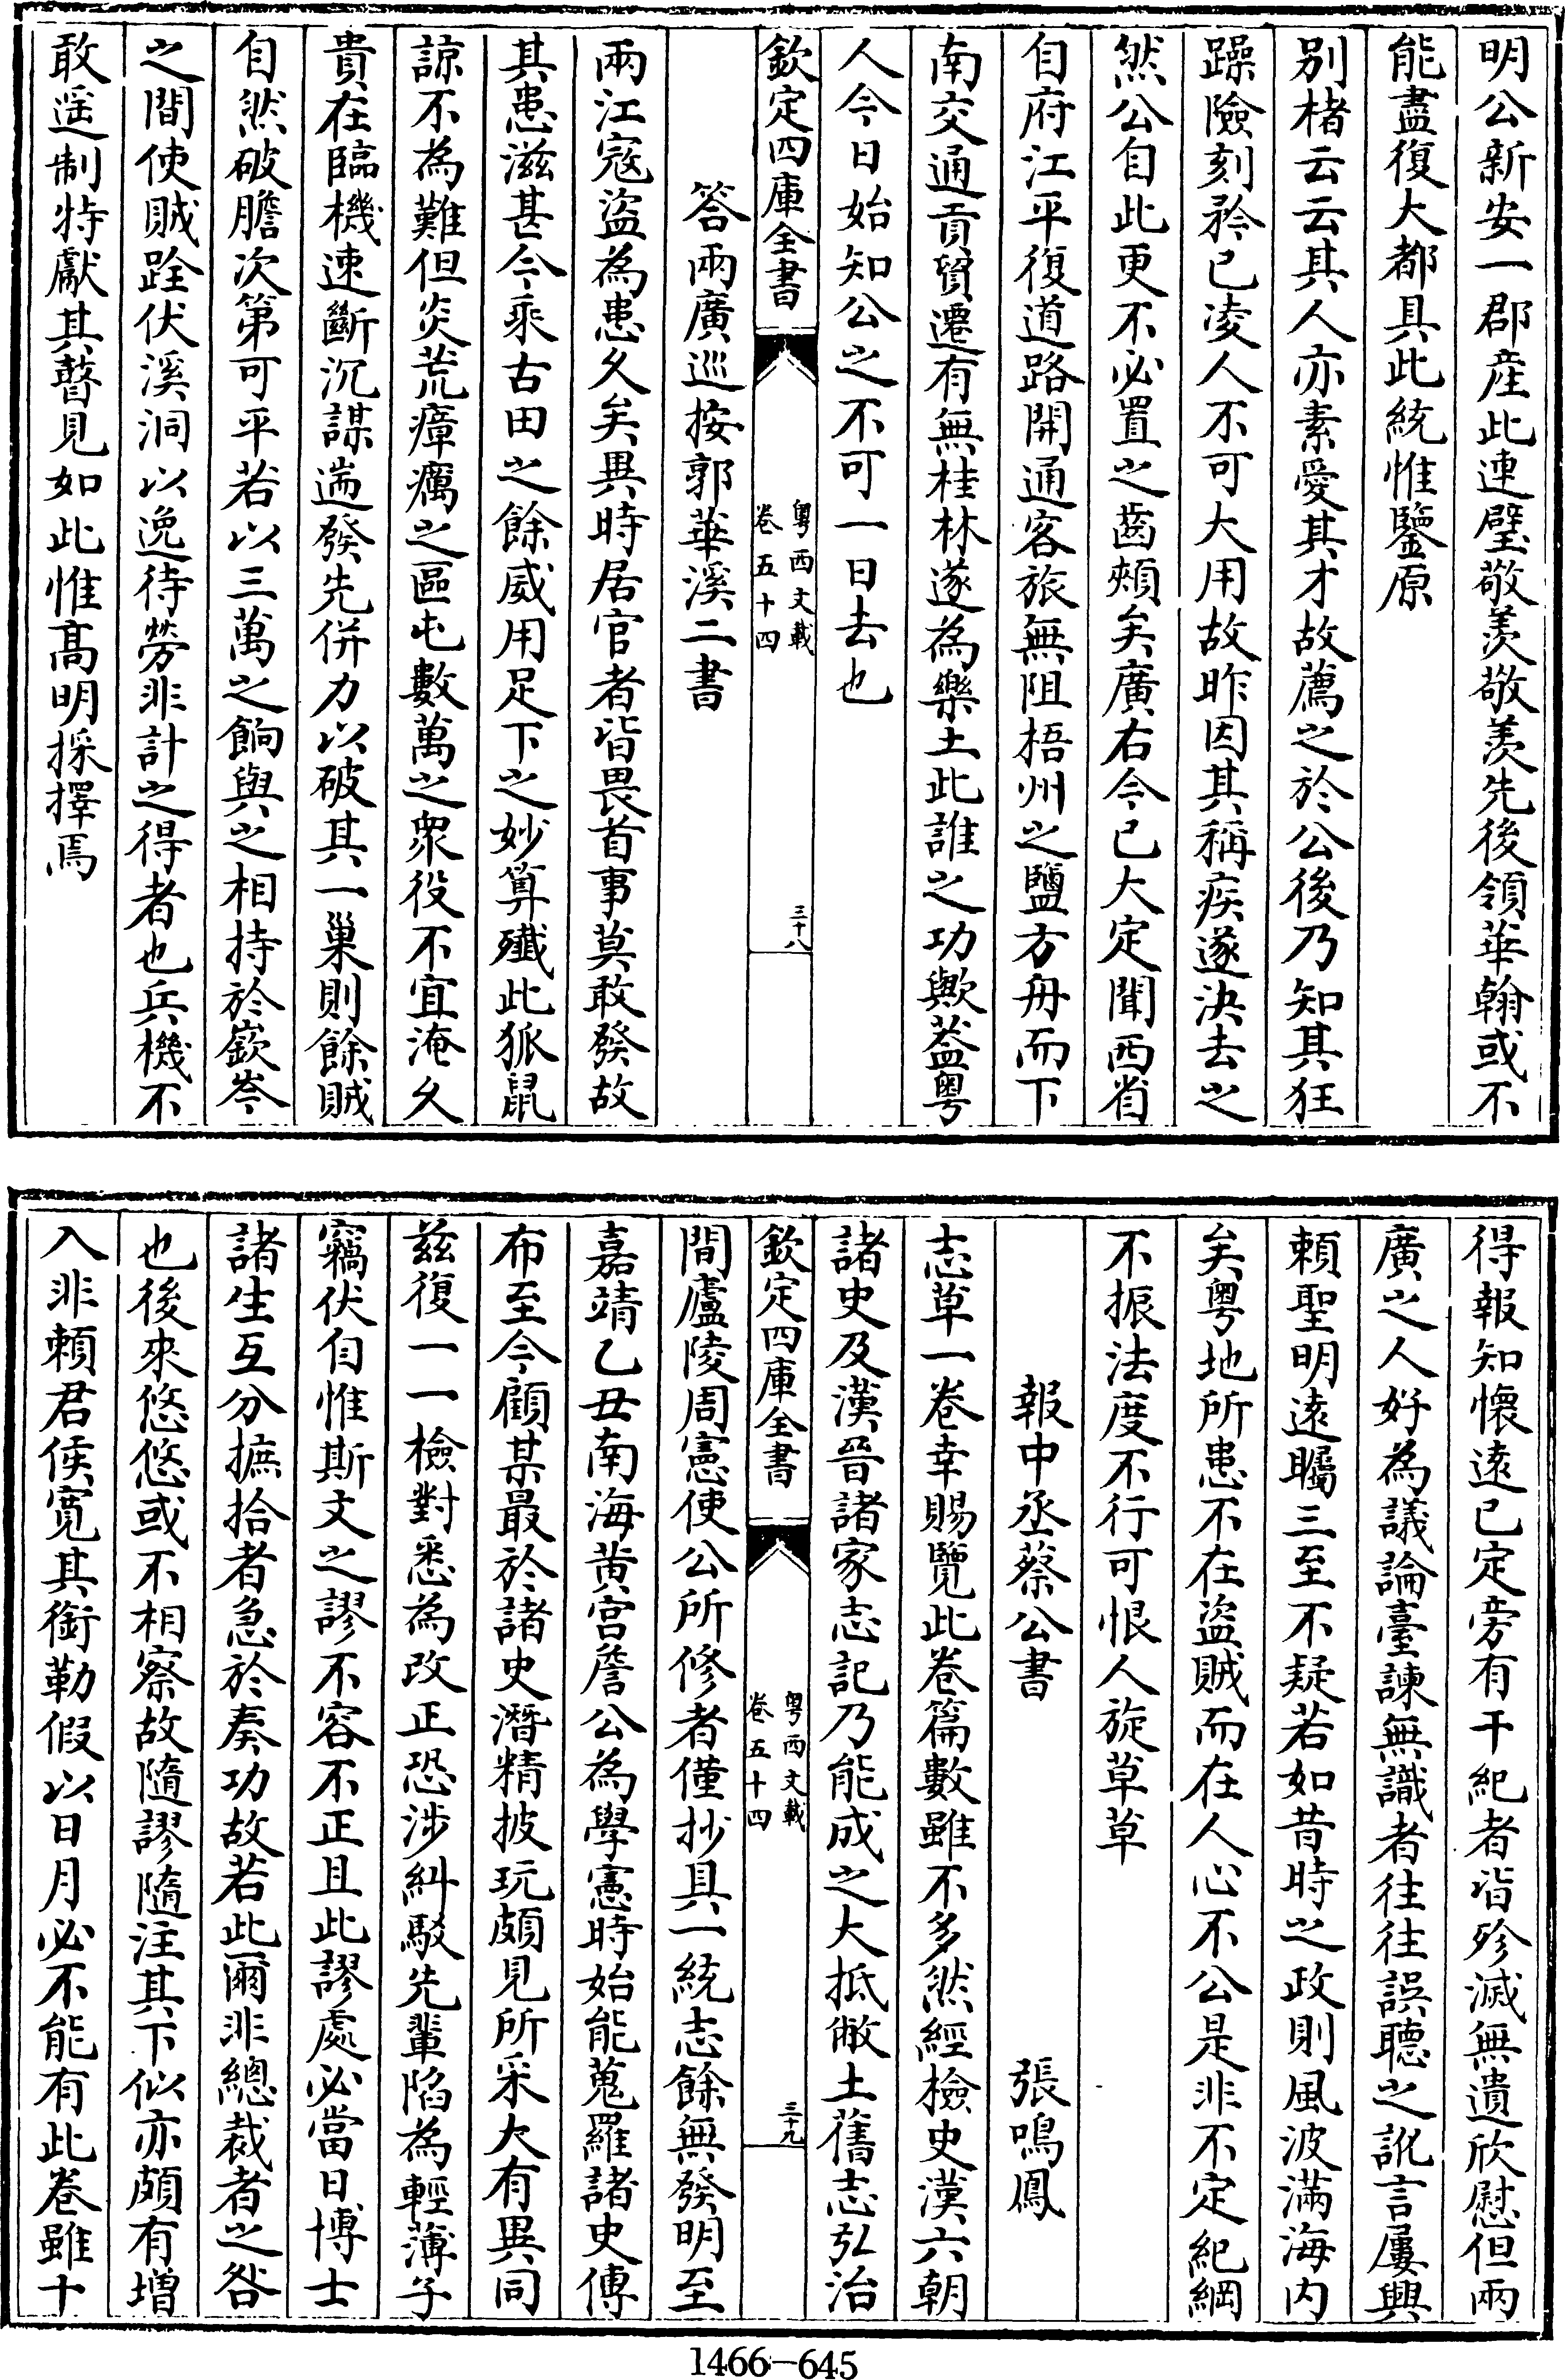 明公新安一郡産此連璧敬羨敬羨先後領華翰或不
能盡復大都具此統惟鑒原
别楮云云其人亦素愛其才故薦之於公後乃知其狂
躁險刻矜已凌人不可大用故昨因其稱疾遂決去之
然公自此更不必置之齒頰矣廣右今已大定聞西省
自府江平復道路開通客旅無阻梧州之鹽方舟而下
南交通貢貿遷有無桂林遂為樂土此誰之功歟葢粤
人今日始知公之不可一日去也
欽定四庫全書
粤西文載
卷五十四
三十八
答兩廣巡按郭華溪二書
兩江寇盜為患久矣異時居官者皆畏首事莫敢發故
其患滋甚今乘古田之餘威用足下之妙算殲此狐鼠
諒不為難但炎荒瘴癘之區屯數萬之衆役不宜淹久
貴在臨機速斷沉謀耑發先併力以破其一巢則餘賊
自然破膽次第可平若以三萬之餉與之相持於嶔岑
之間使賊跧伏溪洞以逸待勞非計之得者也兵機不
敢遥制特獻其瞽見如此惟髙明採擇焉
得報知懷遠已定旁有干紀者皆殄滅無遺欣慰但兩
廣之人好為議論臺諫無識者往往誤聽之訛言屢興
頼聖明遠矚三至不疑若如昔時之政則風波滿海内
矣粤地所患不在盜賊而在人心不公是非不定紀綱
不振法度不行可恨人旋草草
報中丞蔡公書 張鳴鳳
志草一卷幸賜覽此卷篇數雖不多然經檢史漢六朝
諸史及漢晉諸家志記乃能成之大抵敝土舊志弘治
欽定四庫全書
粤西文載
卷五十四
三十九
間廬陵周憲使公所修者僅抄具一統志餘無發明至
嘉靖乙丑南海黄宫詹公為學憲時始能蒐羅諸史傳
布至今顧某最於諸史潛精披玩頗見所采大有異同
兹復一一檢對悉為改正恐涉糾駁先輩陷為輕薄子
竊伏自惟斯文之謬不容不正且此謬處必當日博士
諸生互分摭拾者急於奏功故若此爾非總裁者之咎
也後來悠悠或不相察故隨謬隨注其下似亦頗有増
入非頼君侯寛其銜勒假以日月必不能有此卷雖十
1466—645